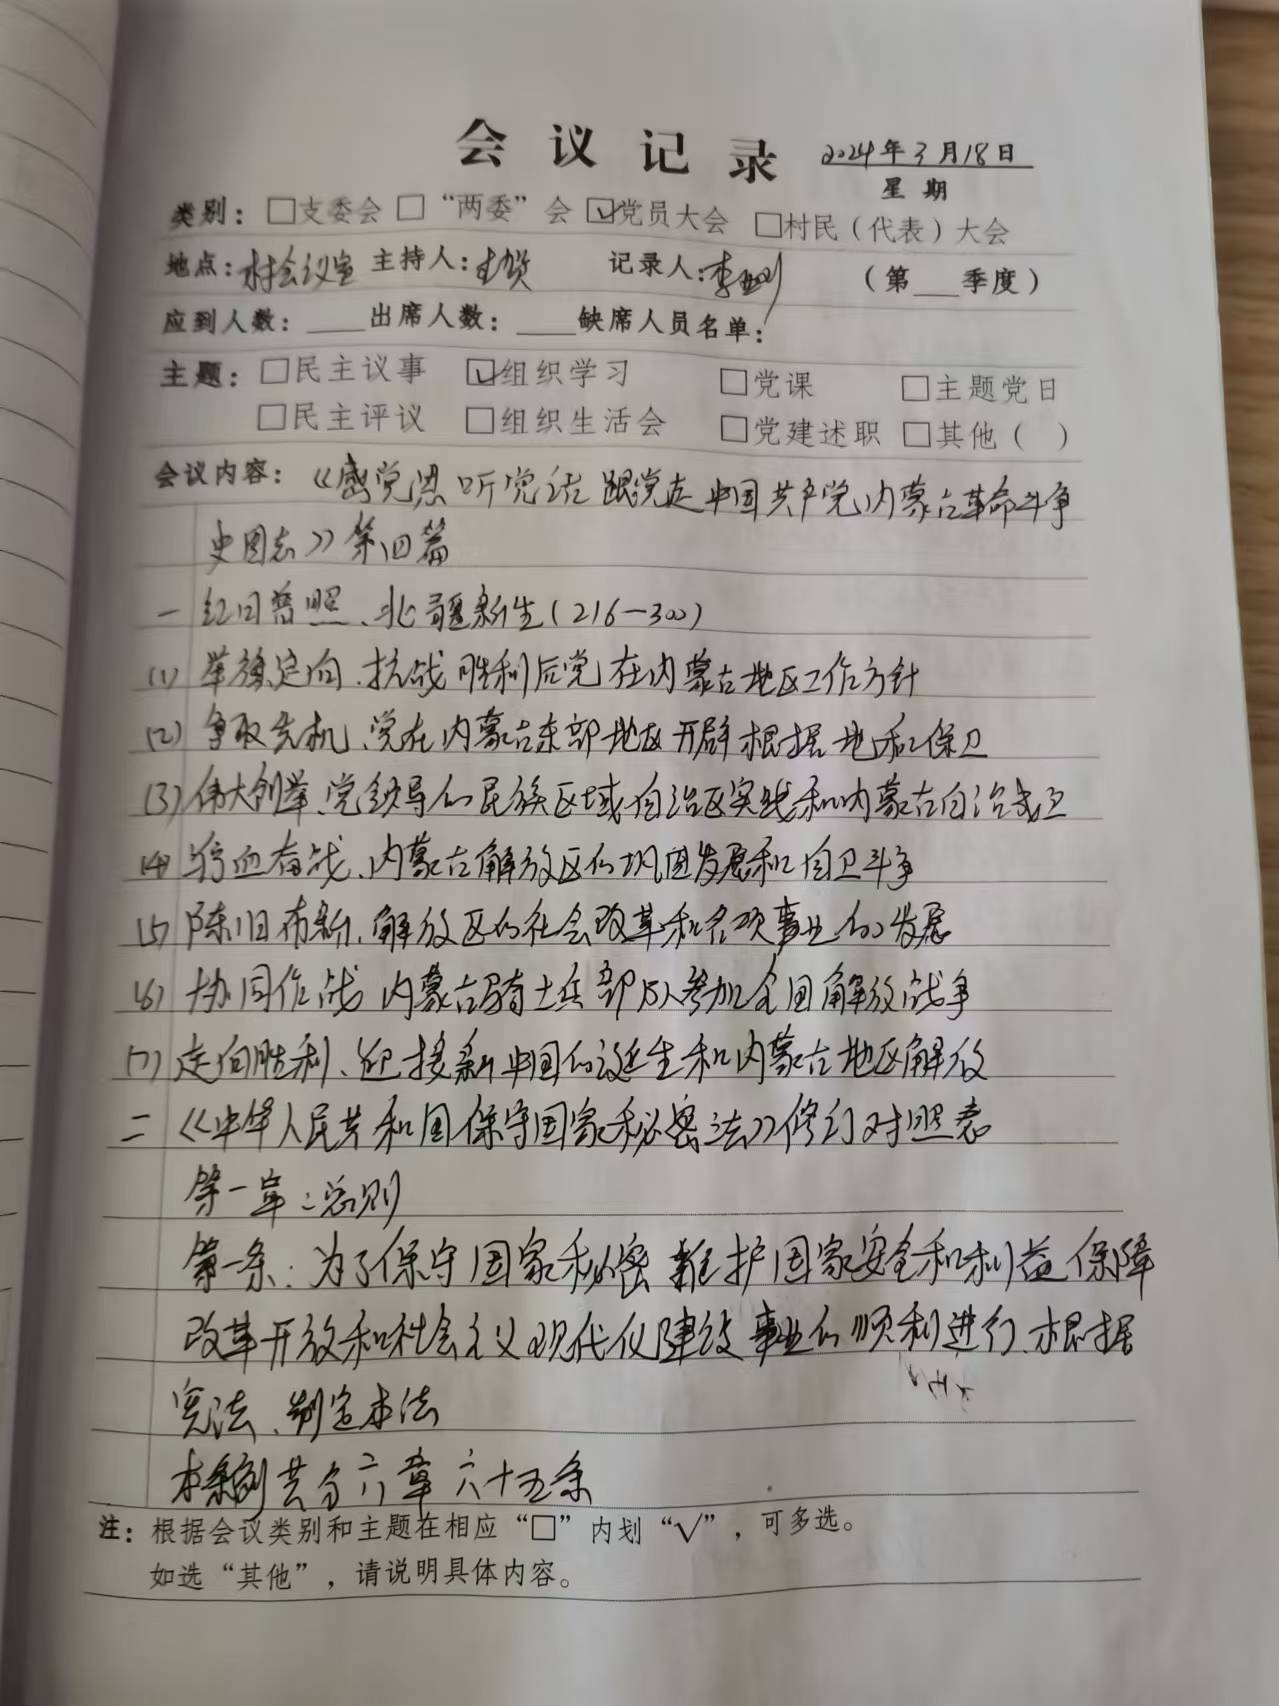 会议记录 2024年3月18日
星期
类别：□支委会 □“两委”会 ☑党员大会 □村民（代表）大会
地点：村会议室 主持人： 记录人：李 （第___季度）
应到人数：____出席人数：____缺席人员名单：
主题：□民主议事 ☑组织学习 □党课 □主题党日
□民主评议 □组织生活会 □党建述职 □其他（ ）
会议内容：《感党恩 听党话 跟党走 中国共产党内蒙古革命斗争
史图志》第四篇
一 红日普照、北疆新生（216—300）
(1) 举旗定向、抗战胜利后党在内蒙古地区工作方针
(2) 争取先机、党在内蒙古东部地区开辟根据地和保卫
(3) 伟大创举、党领导的民族区域自治区实践和内蒙古自治成立
(4) 浴血奋战、内蒙古解放区的巩固发展和自卫斗争
(5) 陈旧布新、解放区的社会改革和各项事业的发展
(6) 协同作战 内蒙古骑士兵部队参加全国解放战争
(7) 走向胜利、迎接新中国的诞生和内蒙古地区解放
二 《中华人民共和国保守国家秘密法》修订对照表
第一章：总则
第一条：为了保守国家秘密 维护国家安全和利益 保障
改革开放和社会主义现代化建设事业的顺利进行、根据
宪法、制定本法
本条例共分六章 六十五条
注：根据会议类别和主题在相应“□”内划“√”，可多选。
如选“其他”，请说明具体内容。